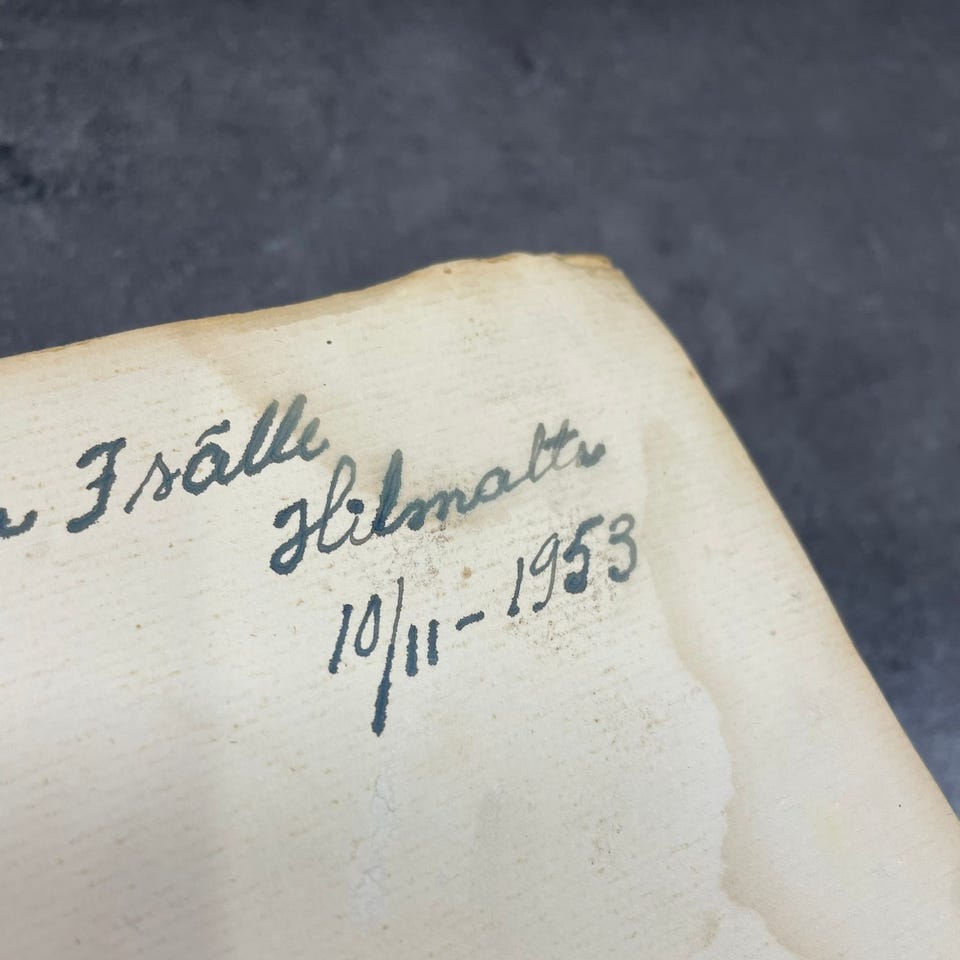 Isälle
Hilmalta
10/11-1953